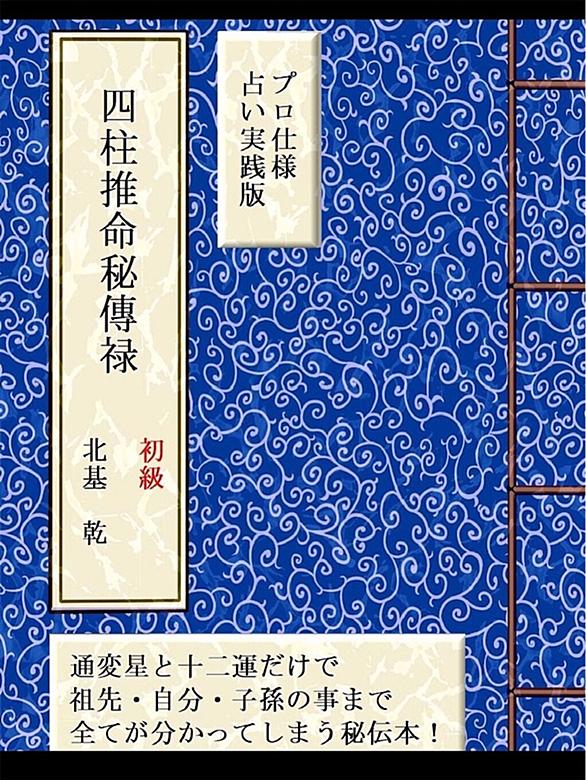 プロ仕様
占い実践版
四柱推命秘傳禄
初級
北基 乾
通変星と十二運だけで
祖先・自分・子孫の事まで
全てが分かってしまう秘伝本！